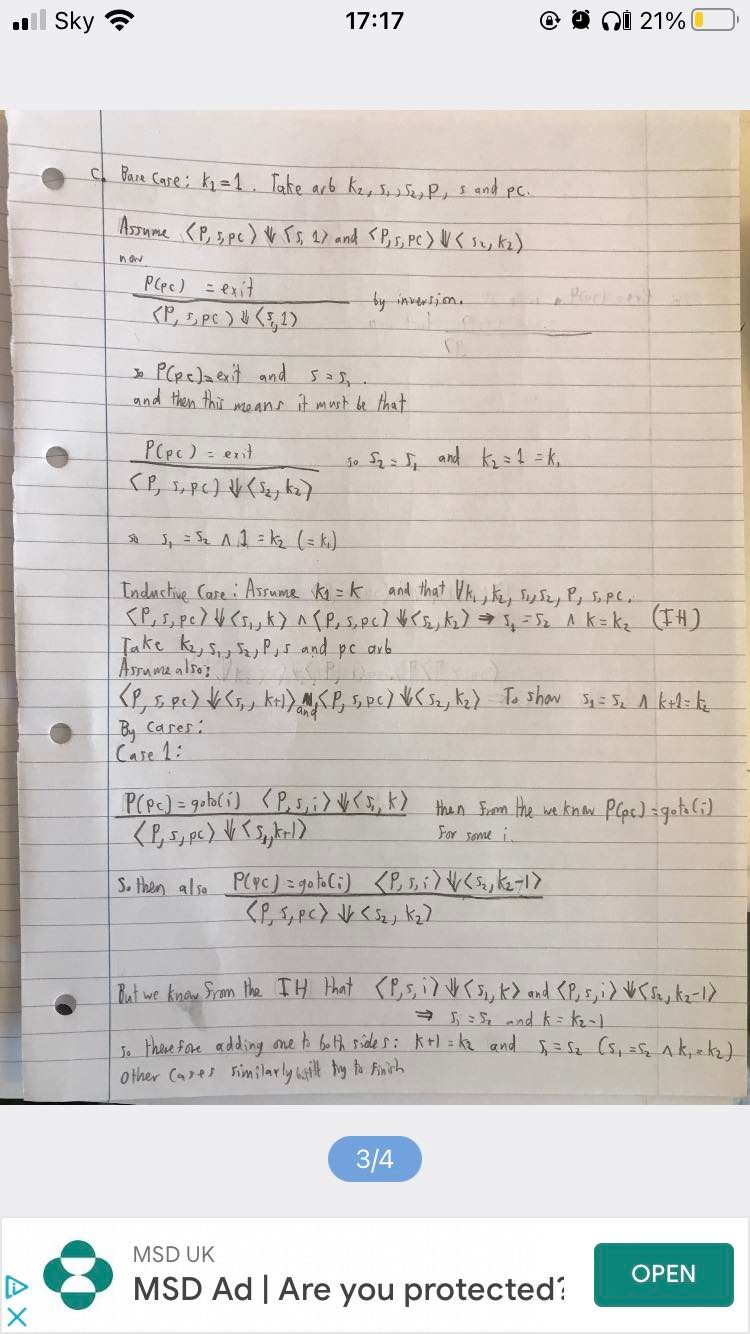 Sky 17:17 21%
C. Base Case: k₁=1. Take arb k₂, s₁, s₂, P, s and pc.
Assume ⟨P, s, pc⟩ ⇓ ⟨s, 1⟩ and ⟨P, s, pc⟩ ⇓ ⟨s₂, k₂⟩
now
P(pc) = exit
by inversion.
⟨P, s, pc⟩ ⇓ ⟨s, 1⟩
so P(pc)=exit and s=s₁.
and then this means it must be that
P(pc) = exit
so s₂=s₁ and k₂=1=k₁
⟨P, s, pc⟩ ⇓ ⟨s₂, k₂⟩
so s₁=s₂ ∧ 1=k₂ (=k₁)
Inductive Case: Assume k₁=k and that ∀k₁, k₂, s₁, s₂, P, s, pc.
⟨P, s, pc⟩ ⇓ ⟨s₁, k⟩ ∧ ⟨P, s, pc⟩ ⇓ ⟨s₂, k₂⟩ ⇒ s₁=s₂ ∧ k=k₂ (IH)
Take k₂, s₁, s₂, P, s and pc arb
Assume also:
⟨P, s, pc⟩ ⇓ ⟨s₁, k+1⟩ and ⟨P, s, pc⟩ ⇓ ⟨s₂, k₂⟩ To show s₁=s₂ ∧ k+1=k₂
By cases:
Case 1:
P(pc)=goto(i) ⟨P, s, i⟩ ⇓ ⟨s₁, k⟩ then from the we know P(pc)=goto(i)
⟨P, s, pc⟩ ⇓ ⟨s₁, k+1⟩ for some i.
So then also P(pc)=goto(i) ⟨P, s, i⟩ ⇓ ⟨s₂, k₂-1⟩
⟨P, s, pc⟩ ⇓ ⟨s₂, k₂⟩
But we know from the IH that ⟨P, s, i⟩ ⇓ ⟨s₁, k⟩ and ⟨P, s, i⟩ ⇓ ⟨s₂, k₂-1⟩
⇒ s₁=s₂ and k=k₂-1
so therefore adding one to both sides: k+1=k₂ and s₁=s₂ (s₁=s₂ ∧ k₁=k₂)
Other cases similarly will try to finish
3/4
MSD UK
MSD Ad | Are you protected?
OPEN